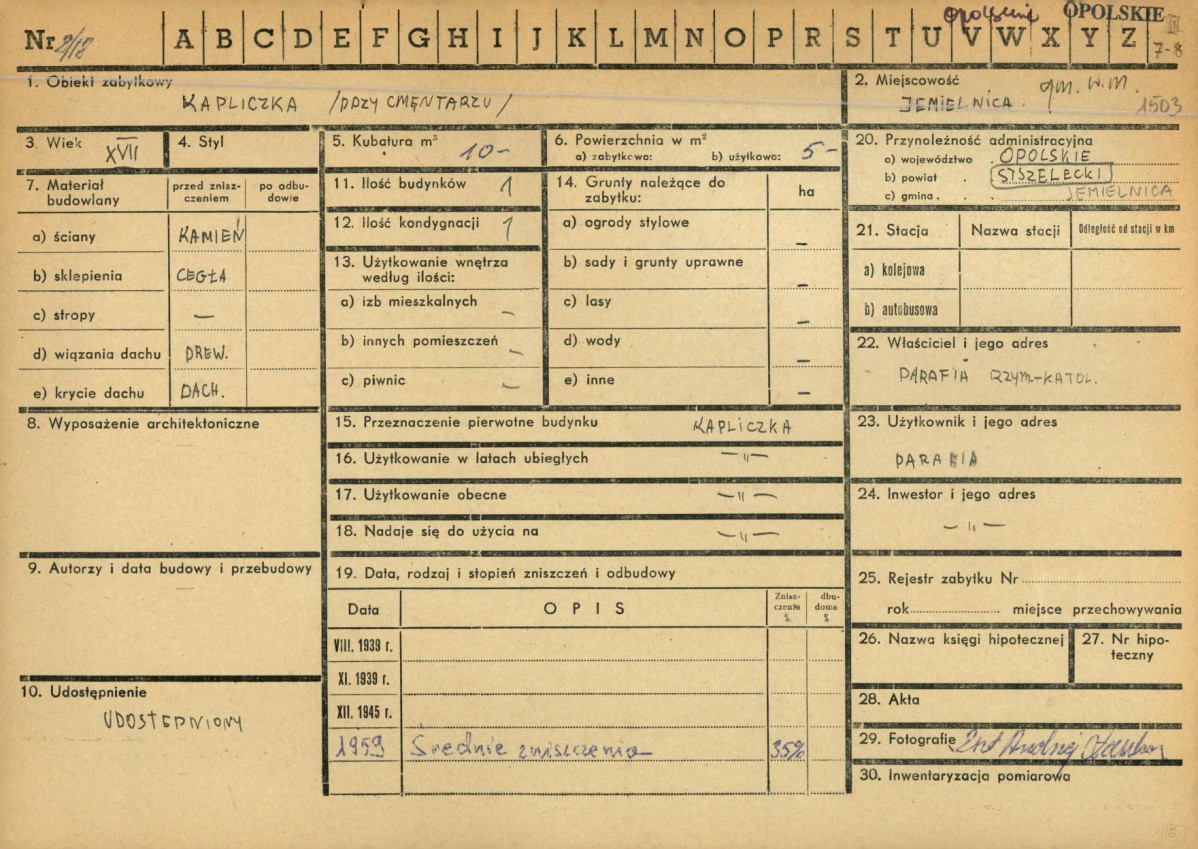 opolskie OPOLSKIE
Nr 2/12 A B C D E F G H I J K L M N O P R S T U V W X Y Z III
7-8
1. Obiekt zabytkowy
KAPLICZKA /PRZY CMENTARZU/
2. Miejscowość gm. w.m.
JEMIELNICA. 1503
3. Wiek XVII
4. Styl
5. Kubatura m³ 10-
6. Powierzchnia w m²
a) zabytkowa: b) użytkowa: 5-
20. Przynależność administracyjna
a) województwo . OPOLSKIE
b) powiat . STSZELECKI
c) gmina . . . JEMIELNICA
7. Materiał budowlany
przed zniszczeniem
po odbudowie
a) ściany KAMIEŃ
b) sklepienia CEGŁA
c) stropy —
d) wiązania dachu DREW.
e) krycie dachu DACH.
11. Ilość budynków 1
12. Ilość kondygnacji 1
13. Użytkowanie wnętrza
według ilości:
a) izb mieszkalnych -
b) innych pomieszczeń -
c) piwnic -
14. Grunty należące do
zabytku:
ha
a) ogrody stylowe -
b) sady i grunty uprawne -
c) lasy -
d) wody -
e) inne -
21. Stacja Nazwa stacji Odległość od stacji w km
a) kolejowa
b) autobusowa
22. Właściciel i jego adres
PARAFIA RZYM-KATOL.
8. Wyposażenie architektoniczne
15. Przeznaczenie pierwotne budynku KAPLICZKA
16. Użytkowanie w latach ubiegłych —"—
17. Użytkowanie obecne —"—
18. Nadaje się do użycia na —"—
23. Użytkownik i jego adres
PARAFIA
24. Inwestor i jego adres
—"—
9. Autorzy i data budowy i przebudowy
19. Data, rodzaj i stopień zniszczeń i odbudowy
Data OPIS Znisz-
czenia
%
dbu-
dowa
%
VIII. 1939 r.
XI. 1939 r.
XII. 1945 r.
1959 Średnie zniszczenia 35%
25. Rejestr zabytku Nr
rok miejsce przechowywania
26. Nazwa księgi hipotecznej
27. Nr hipo-
teczny
10. Udostępnienie
UDOSTĘPNIONY
28. Akta
29. Fotografie
30. Inwentaryzacja pomiarowa